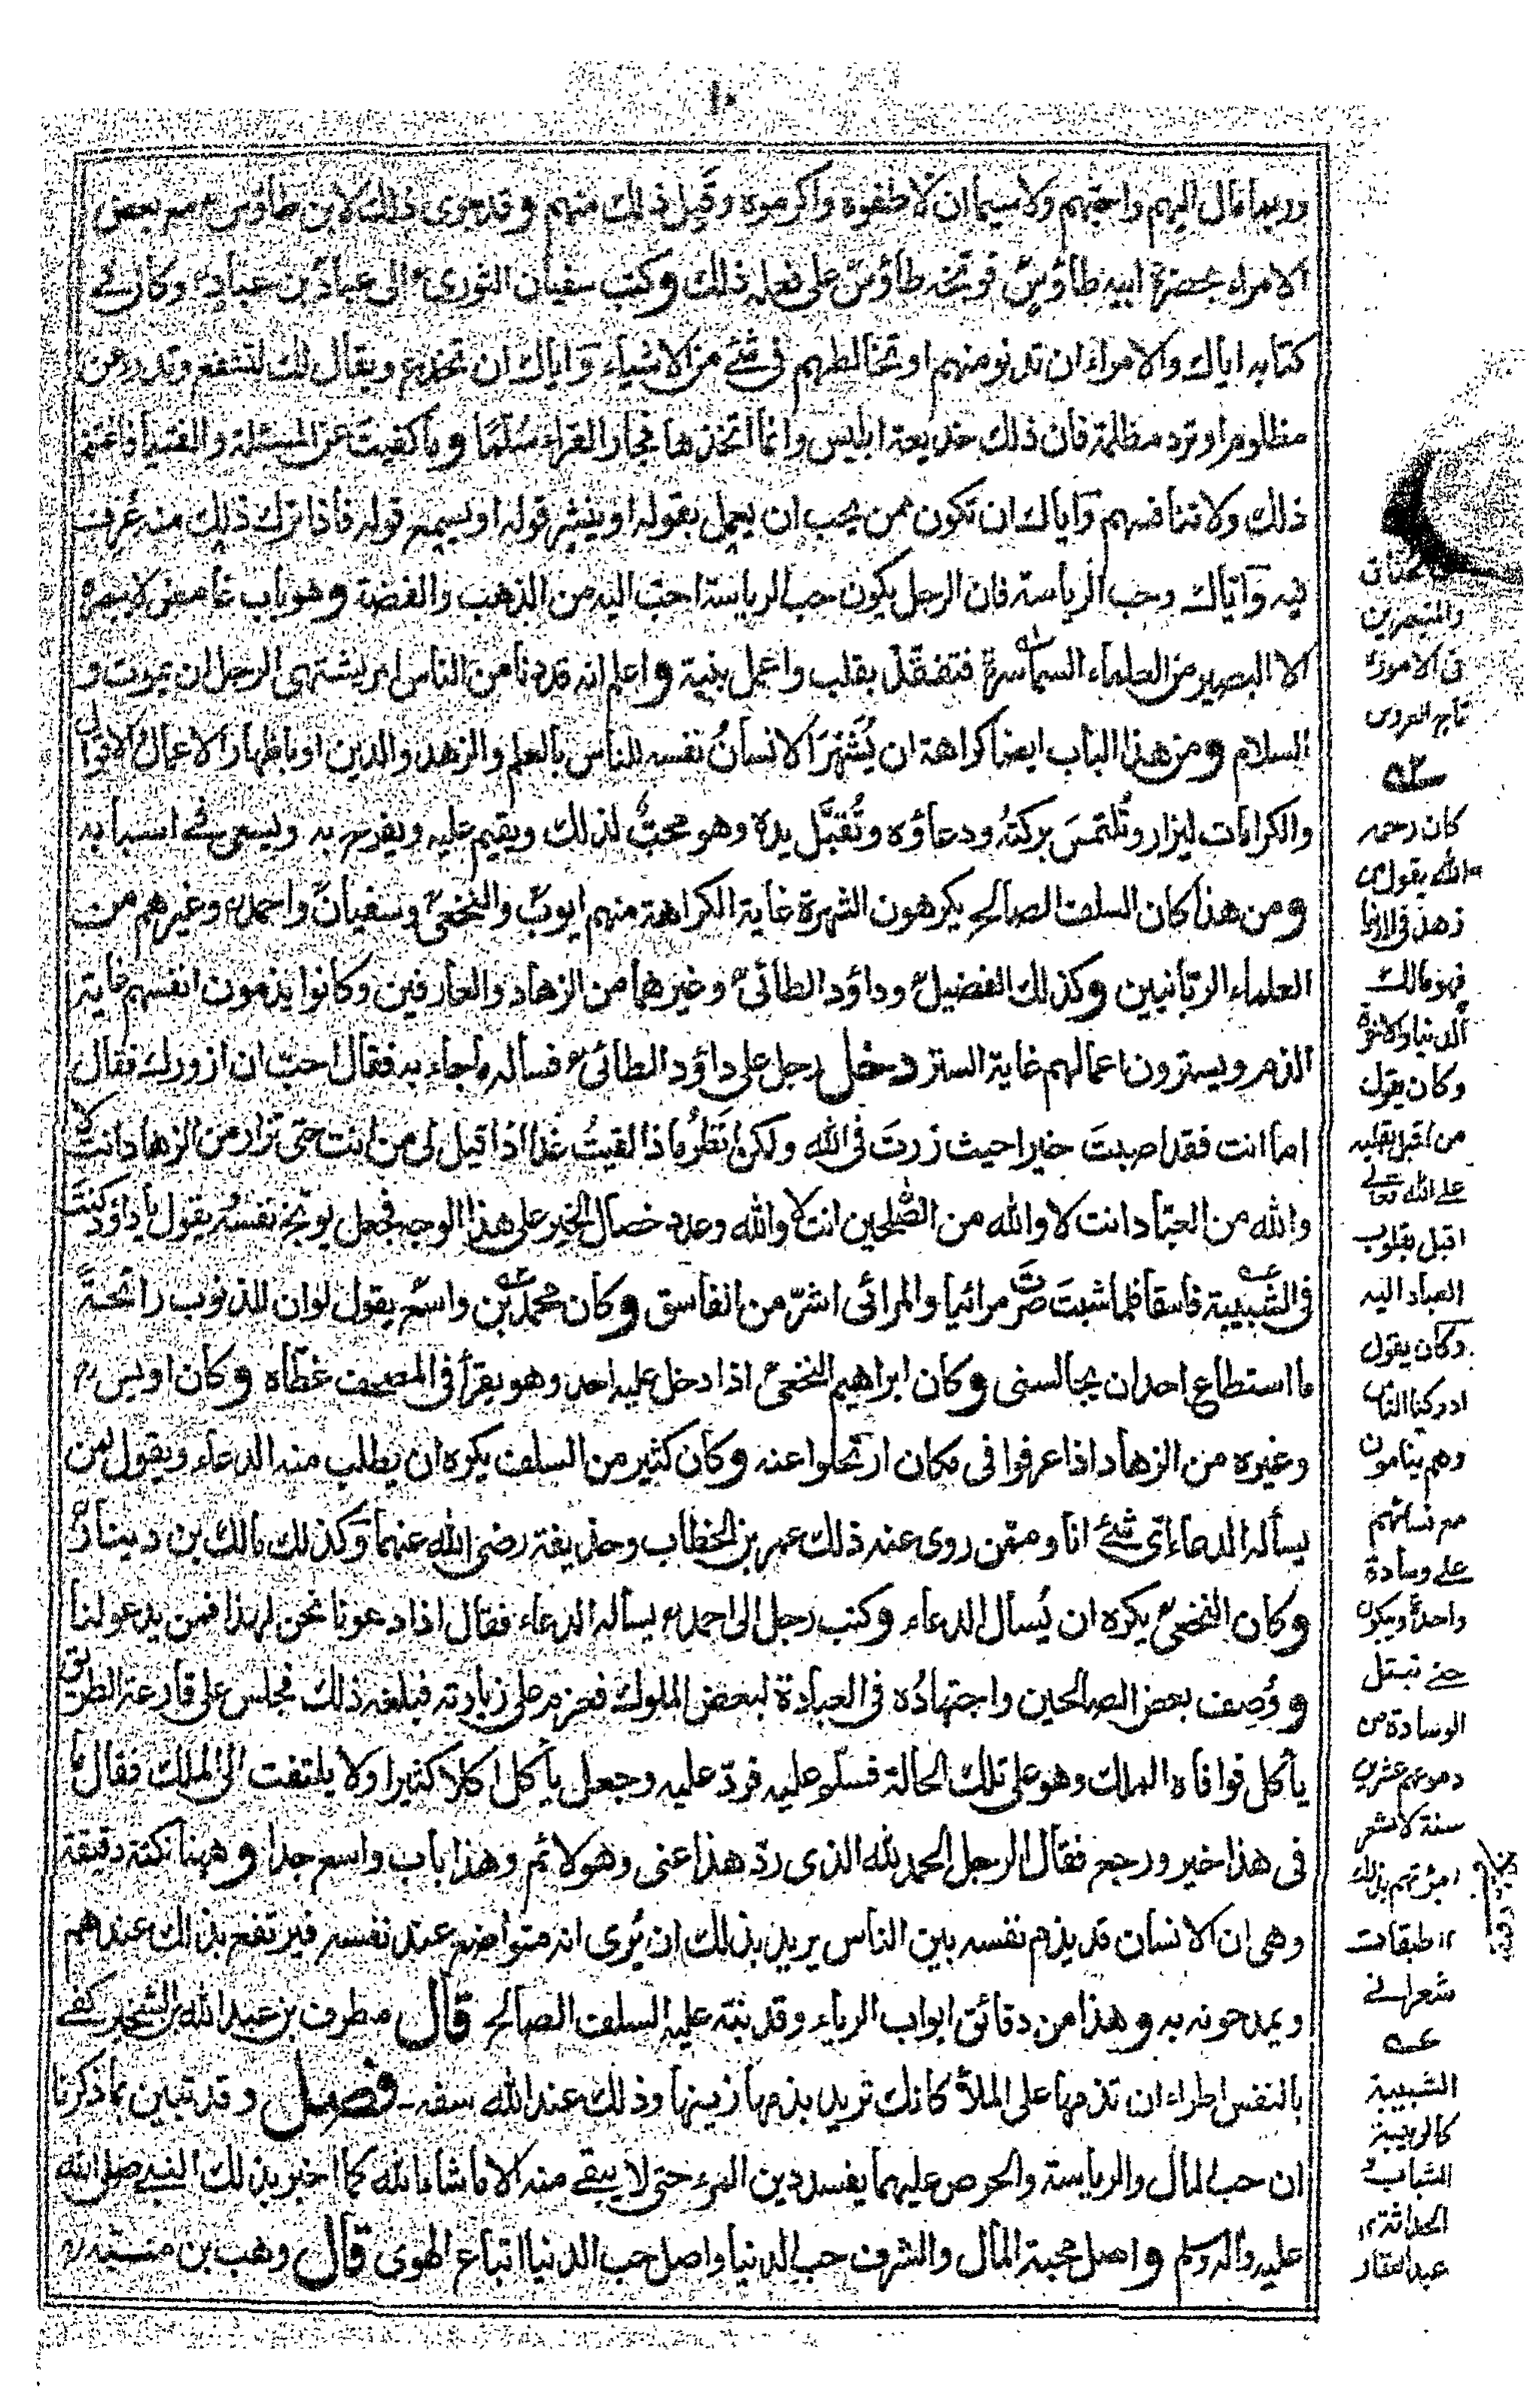 ١٠
وربما مال اليهم واحبهم ولا سيما ان لاطفوه واكرموه وقبل ذلك منهم وقد جرى ذلك لابن طاؤس مع بعض
الامراء بحضرة ابيه طاؤس فوبخه طاؤس على فعله ذلك وكتب سفيان الثورى الى عباد بن عباد وكان في
كتابه اياك والامراء ان تدنو منهم او تخالطهم فى شئ من الاشياء واياك ان تخدع ويقال لك لتشفع وتدرء عن
مظلوم او ترد مظلمة فان ذلك خديعة ابليس وانما اتخذها فجار القراء سُلَّمًا وما كفيت عن المسئلة والفتيا فاغتنم
ذلك ولا تنافسهم واياك ان تكون ممن يحب ان يعمل بقوله او ينشر قوله او يسمع قوله فاذا ترك ذلك منه عُرِف
فيه واياك وحب الرياسة فان الرجل يكون حب الرياسة احب اليه من الذهب والفضة وهو باب غامض لا يبصره
الا البصير من العلماء السماسرة فتفقد بقلب واعمل بنية واعلم انه قد دنا من الناس امر يشتهى الرجل ان يموت و
السلام ومن هذا الباب ايضا كراهة ان يُشهِرَ الانسانُ نفسه للناس بالعلم والزهد والدين او باظهار الاعمال والاقوال
والكرامات ليزار وتُلتمسَ بركتُه ودعاؤه وتُقبَّل يده وهو محبٌّ لذلك ويقيم عليه ويفرح به ويسعى في اسبابه
ومن هذا كان السلف الصالح يكرهون الشهرة غاية الكراهة منهم ايوب والنخعى وسفيان واحمد وغيرهم من
العلماء الربانيين وكذلك الفضيل وداؤد الطائى وغيرهما من الزهاد والعارفين وكانوا يذمون انفسهم غاية
الذم ويسترون اعمالهم غاية الستر دخل رجل على داؤد الطائى فسأله ما جاء به فقال احبّ ان ازورك فقال
اما انت فقد اصبتَ خيرا حيث زرتَ فى الله ولكن انظرُ ماذا لقيتُ غدا اذا قيل لى من انت حتى تزار من الزهاد انت لا
والله من العبّاد انت لا والله من الصٰلحين انت لا والله وعدد خصال الخير على هذا الوجه فجعل يوبخ نفسه يقول يا داؤد كنتَ
فى الشبيبة فاسقا فلما شبتَ صرتَ مرائيا والمرائى اشرّ من الفاسق وكان محمد بن واسع يقول لو ان للذنوب رائحة
ما استطاع احد ان يجالسنى وكان ابراهيم النخعى اذا دخل عليه احد وهو يقرأ فى المصحف غطّاه وكان اويس
وغيره من الزهاد اذا عرفوا فى مكان ارتحلوا عنه وكان كثير من السلف يكره ان يطلب منه الدعاء ويقول لمن
يسأله الدعاء اىّ شئ انا وممّن روى عنه ذلك عمر بن الخطاب وحذيفة رضى الله عنهما وكذلك مالك بن دينار
وكان النخعى يكره ان يُسأل الدعاء وكتب رجل الى احمد يسأله الدعاء فقال اذا دعونا نحن لهذا فمن يدعو لنا
ووُصِف بعض الصالحين واجتهادُه فى العبادة لبعض الملوك فعزم على زيارته فبلغه ذلك فجلس على قارعة الطريق
يأكل فوافاه الملك وهو على تلك الحالة فسلم عليه فردّ عليه وجعل يأكل اكلا كثيرا ولا يلتفت الى الملك فقال ما
فى هذا خير ورجع فقال الرجل الحمد لله الذى ردّ هذا عنى وهو لائم وهذا باب واسع جدا وههنا نكتة دقيقة
وهى ان الانسان قد يذم نفسه بين الناس يريد بذلك ان يُرى انه متواضع عند نفسه فيرتفع بذلك عندهم
ويمدحونه به وهذا من دقائق ابواب الرياء وقد نبّه عليه السلف الصالح قال مطرف بن عبد الله بن الشخير كفى
بالنفس اطراء ان تذمها على الملأ كانك تريد بذمها زينها وذلك عند الله سفه فصل وقد تبين بما ذكرنا
ان حب المال والرياسة والحرص عليهما يفسد دين المرء حتى لا يبقى منه الا ما شاء الله كما اخبر بذلك النبى صلى الله
عليه واله وسلم واصل محبة المال والشرف حب الدنيا واصل حب الدنيا اتباع الهوى قال وهب بن منبه
والمتبحرين
فى الامور
تاج العروس
كان رحمه
الله يقول من
زهد فى الدنيا
فهو مالك
الدنيا والاخرة
وكان يقول
من اقبل بقلبه
على الله تعالى
اقبل بقلوب
العباد اليه
وكان يقول
ادركنا الناس
وهم ينامون
مع نسائهم
على وسادة
واحدة ويبكون
حتى تبتل
الوسادة من
دموعهم عشرين
سنة لا تشعر
امرئتهم بذلك
١٢ طبقات
شعرانى
عه
الشبيبة
كالربيبة
الشباب و
الحداثة ١٢
عبد الغفار